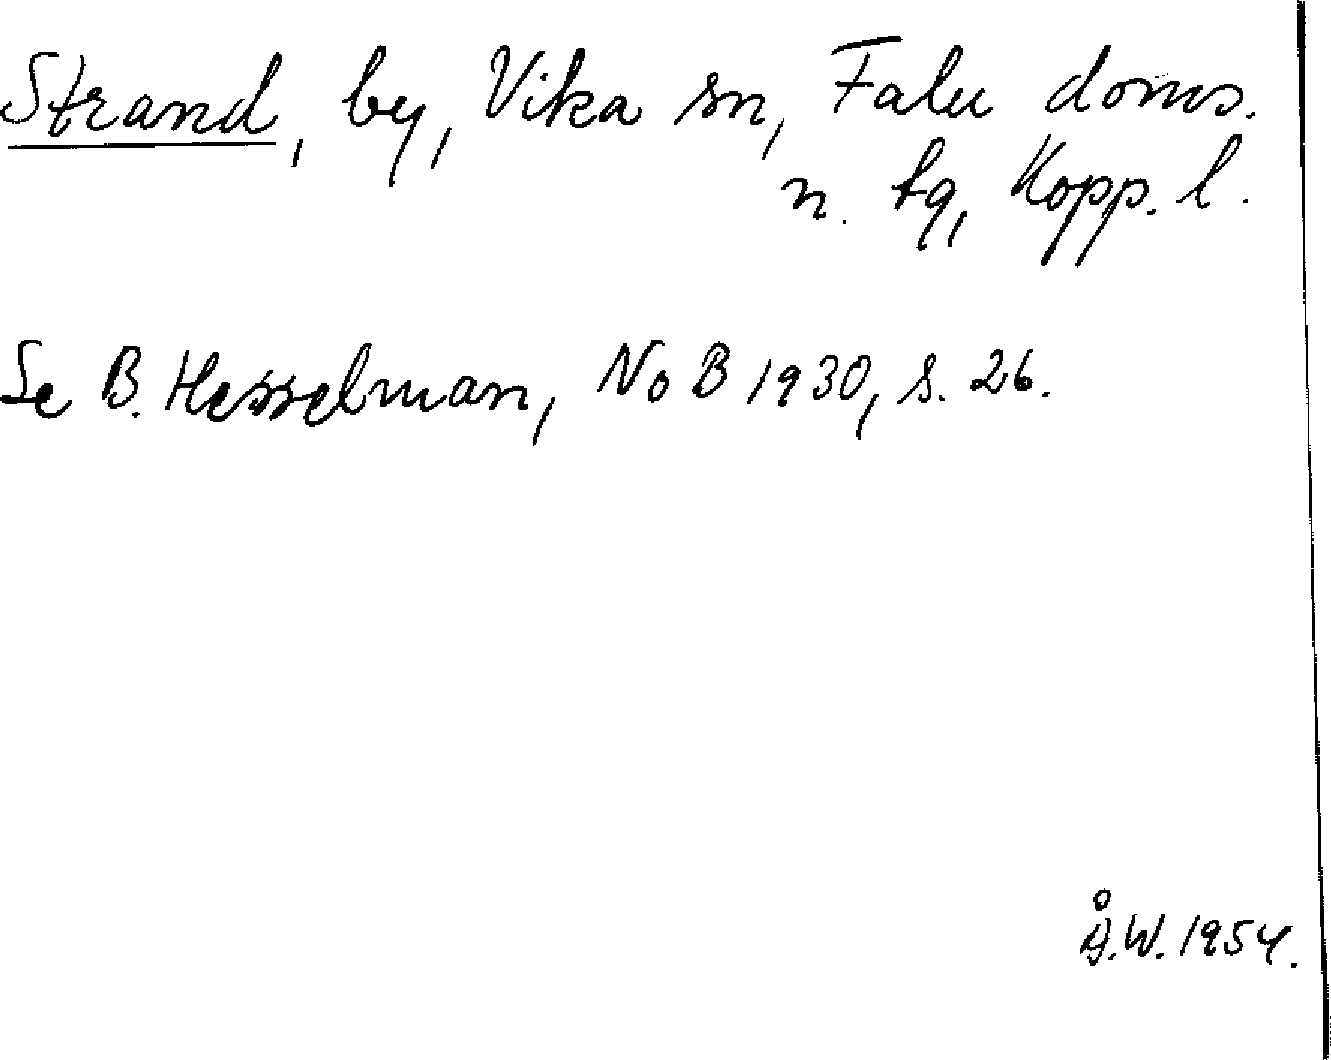 Strand, by, Vika sn, Falu doms.
n. tg, Kopp. l.
Se B. Hesselman, NoB 1930, s. 26.
Å.W. 1954.